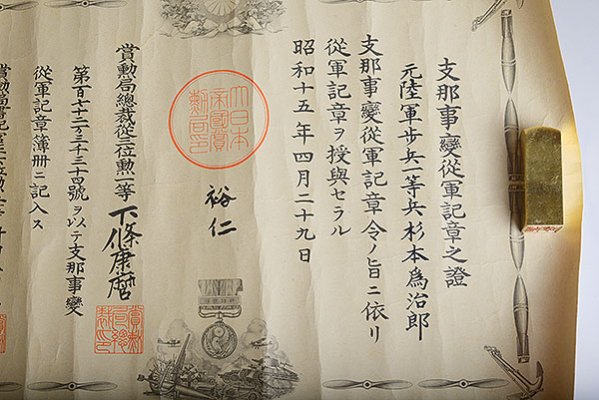 支那事變從軍記章之證
元陸軍步兵一等兵杉本爲治郎
支那事變從軍記章令ノ旨ニ依リ
從軍記章ヲ授與セラル
昭和十五年四月二十九日
大日本帝國賞勳局印
裕仁
賞勳局總裁從三位勳一等下條康麿
賞勳局總裁印
第百七十二万三千三十四號ヲ以テ支那事變
從軍記章簿册ニ記入ス
賞勳局書記官